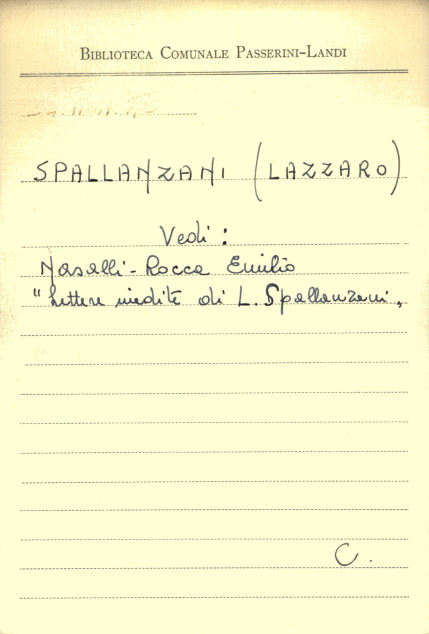 BIBLIOTECA COMUNALE PASSERINI-LANDI
SPALLANZANI (LAZZARO)
Vedi:
Nasalli-Rocca Emilio
"Lettere inedite di L. Spallanzani„
C.